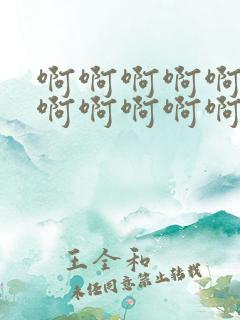 啊啊啊啊啊
啊啊啊啊啊
王全和
未经同意禁止转载